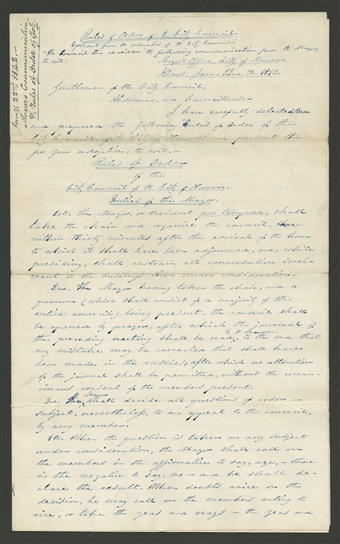 Rules of Order of the City Council.
Extract from the minutes of the City Council
The Council then received the following communication from the Mayor
to wit:
Mayor's Office, City of Nauvoo,
Illinois, Jan. 22nd 1842.
Gentlemen of the City Council,
Aldermen, and Councillors:—
I have carefully selected
and prepared the following Rules of Order of the
City Council, of the City of Nauvoo, and present them
for your adoption, to wit,—
Rules of Order
of the
City Council of the City of Nauvoo.
Duties of the Mayor.
1st. The Mayor, or President pro tempore, shall
take the chair and organize the council,
within thirty minutes after the arrival of the hour
to which it shall have been adjourned, and, while
presiding, shall restrain all conversation irrele-
vant to the business then under consideration.
2nd. The Mayor having taken the chair, and a
quorum (which shall consist of a majority of the
entire council) being present, the council shall
be opened by prayer, after which the journal of
the preceding meeting shall be read, to the end that
any mistake may be corrected that shall have
been made in the entries, after which no alteration
of the journal shall be permitted, without the unan-
imous consent of the members present.
3rd. The Mayor shall decide all questions of order—
subject, nevertheless, to an appeal to the council,
by any member.
4th. When the question is taken on any subject
under consideration, the Mayor shall call on
the members in the affirmative to say, aye,— those
in the negative to say, no— and he shall de-
clare the result. When doubts arise on the
decision, he may call on the members voting to
rise, or take the yeas and nays— the yeas and
Jany 22nd 1842.
Mayor's Communication,
& Rules of Order of City